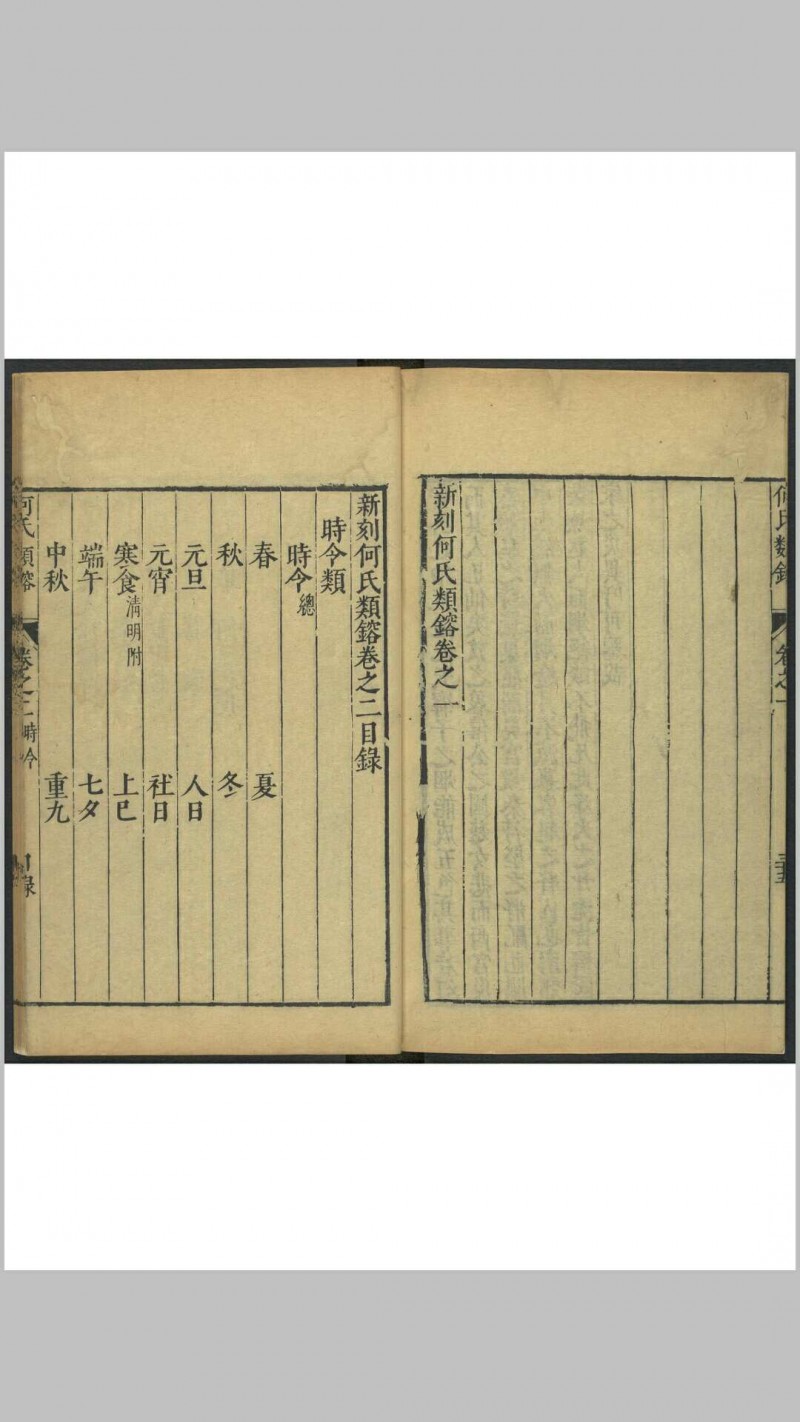 何氏類鎔
卷之一
三五
新刻何氏類鎔卷之一
新刻何氏類鎔卷之二目錄
時令類
時令總
春 夏
秋 冬
元旦 人日
元宵 社日
寒食清明附 上巳
端午 七夕
中秋 重九
何氏類鎔
卷之二時令
目錄